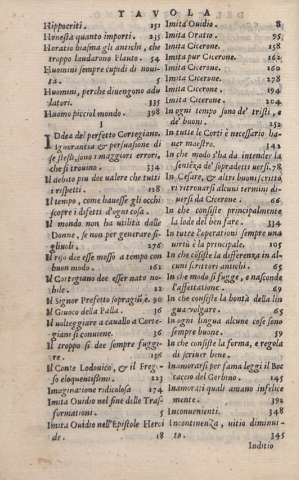 TAVOLA
Hippocriti. 251
Honestà quanto importi. 235
Horatio biasma gli antichi, che
troppo laudarono Plauto. 54
Huomini sempre cupidi di noui-
tà. 5
Huomini, perche diuengono adu
latori. 135
Huomo picciol mondo. 398
I
IDdea del perfetto Cortegiano.
Ignorantia & persuasione di
se stessi, sono i maggiori errori,
che si trouino. 334
Il debito pio dee valere che tutti i
rispetti. 128
Il tempo, come hauesse gli occhi
scopre i difetti d'ogni cosa.
Il mondo non ha utilità dalle
Donne, se non per generare fi-
gliuoli. 276
Il riso dee esse mosso a tempo con
buon modo. 162
Il Cortegiano dee esser nato no-
bile. 22
Il Signor Prefetto sopragiũse. 90
Il Giuoco della Palla. 36
Il uolteggiare a cauallo a Corte-
giani si conuiene. 36
Il troppo si dee sempre fuggi-
re. 136
Il Conte Lodouico, & il Frego-
so eloquentissimi. 223
Imaginatione ridicolosa 174
Imita Ouidio nel fine delle Tras-
formationi. 5
Imita Ouidio nell'Epistole Heroi
de. 18
Imita Ouidio. 8
Imita Oratio. 95
Imita Cicerone. 158
Imita pur Cicerone. 162
Imita Cicerone. 160
Imita Cicerone. 178
Imita Cicerone. 194
Imita Cicerone. 204
In ogni tempo sono de' tristi, e
de' buoni. 252
In tutte le Corti è necessario ha-
uer maestro. 142
In che modo s'ha da intender la
sentẽza de' sopradetti uersi. 78
In Cesare, & altri buoni scritti
ri ritrouarsi alcuni termini di-
uersi da Cicerone. 66
In che consiste principalmente
la lode del ben fare. 334
In tutte l'operationi sempre una
uirtù è la principale. 105
In che cõsiste la differenza in al-
cuni scrittori antichi. 65
In che modo si fugge, e nasconde
l'affettatione. 69
In che consiste la bontà della lin
gua volgare. 65
In ogni lingua alcune cose sono
sempre buone. 59
In che consiste la forma, e regola
di scriuer bene.
Inamorarsi per fama leggi il Boc
taccio del Gerbino. 145
Inamorati quali amano infelice
mente. 392
Inconuenienti. 348
Incontinenza, uitio diminui-
to. 345
Inditio